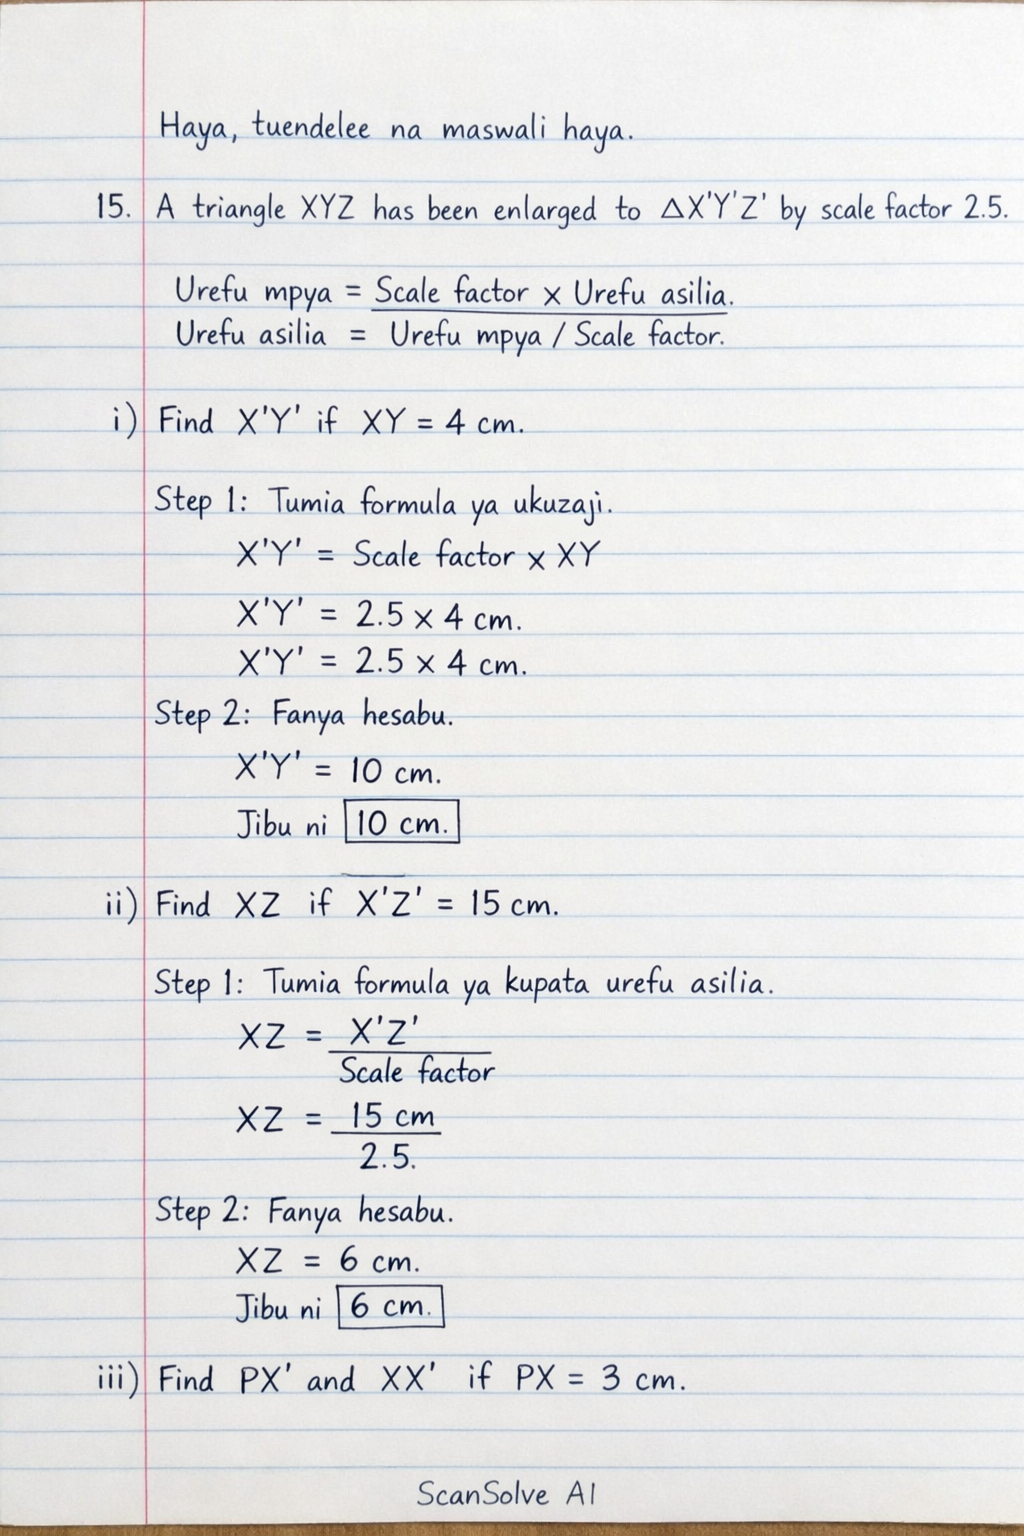 Haya, tuendelee na maswali haya.
15. A triangle XYZ has been enlarged to ΔX'Y'Z' by scale factor 2.5.
Urefu mpya = Scale factor x Urefu asilia.
Urefu asilia = Urefu mpya / Scale factor.
i) Find X'Y' if XY = 4 cm.
Step 1: Tumia formula ya ukuzaji.
X'Y' = Scale factor x XY
X'Y' = 2.5 x 4 cm.
X'Y' = 2.5 x 4 cm.
Step 2: Fanya hesabu.
X'Y' = 10 cm.
Jibu ni 10 cm.
ii) Find XZ if X'Z' = 15 cm.
Step 1: Tumia formula ya kupata urefu asilia.
XZ = X'Z'
Scale factor
XZ = 15 cm
2.5.
Step 2: Fanya hesabu.
XZ = 6 cm.
Jibu ni 6 cm.
iii) Find PX' and XX' if PX = 3 cm.
ScanSolve AI